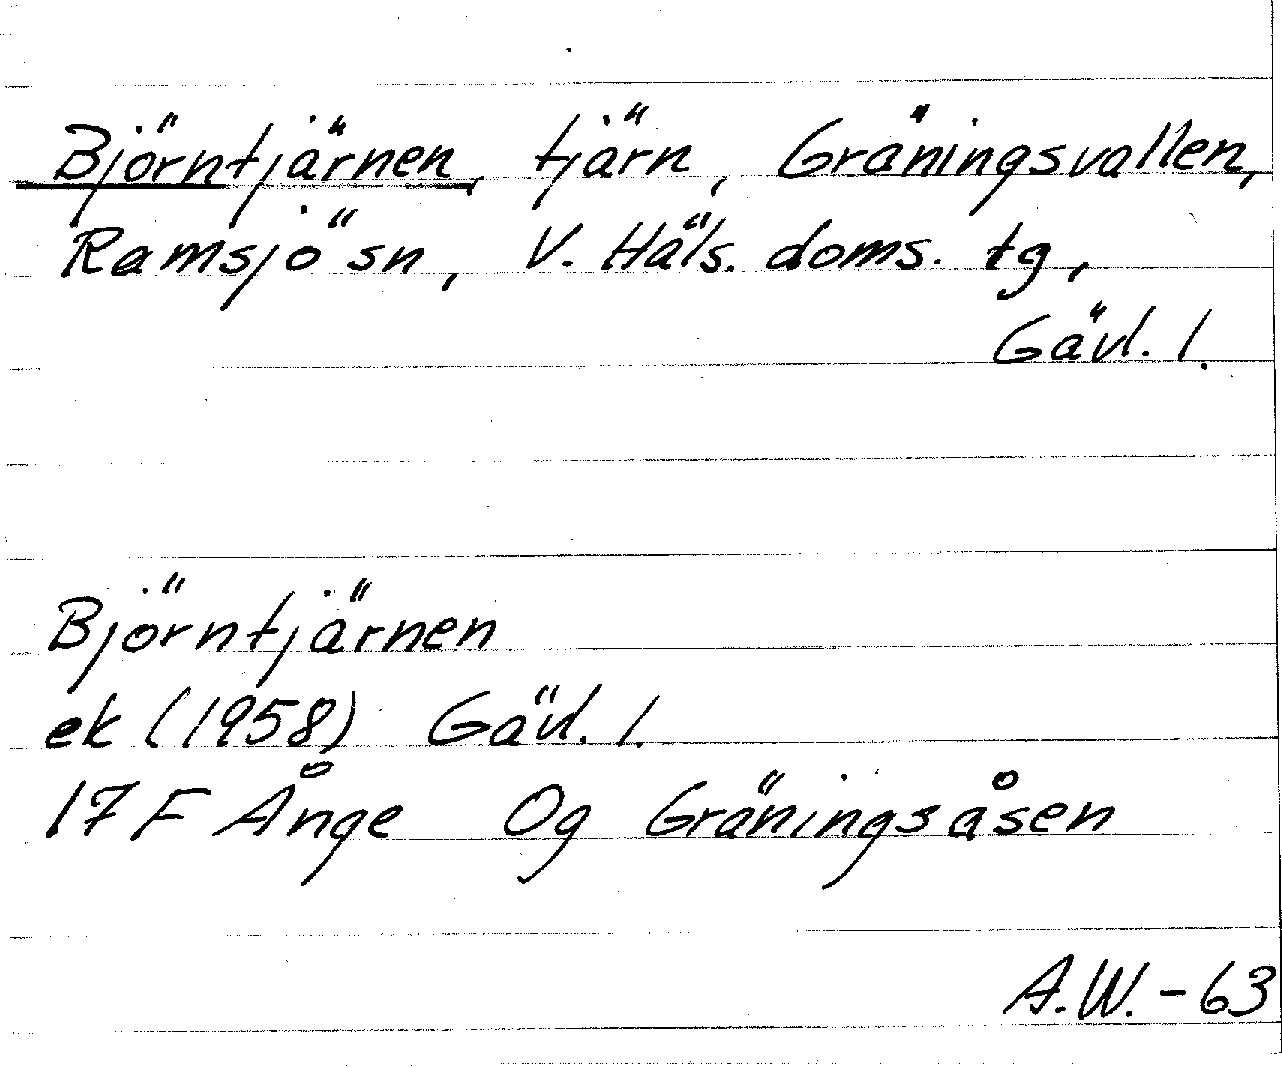 Björntjärnen, tjärn, Gräningsvallen,
Ramsjö sn, V. Häls. doms. tg,
Gävl. l.
Björntjärnen
ek (1958) Gävl. l.
17 F Ånge Og Gräningsåsen
A.W. - 63